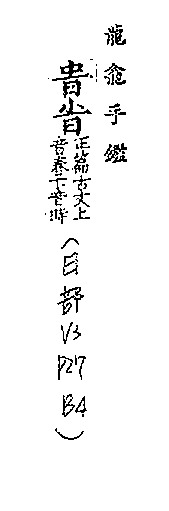 龍龕手鑑
旾旹
正篇古文上
音春下音時
(日部 V3 P27 B4)